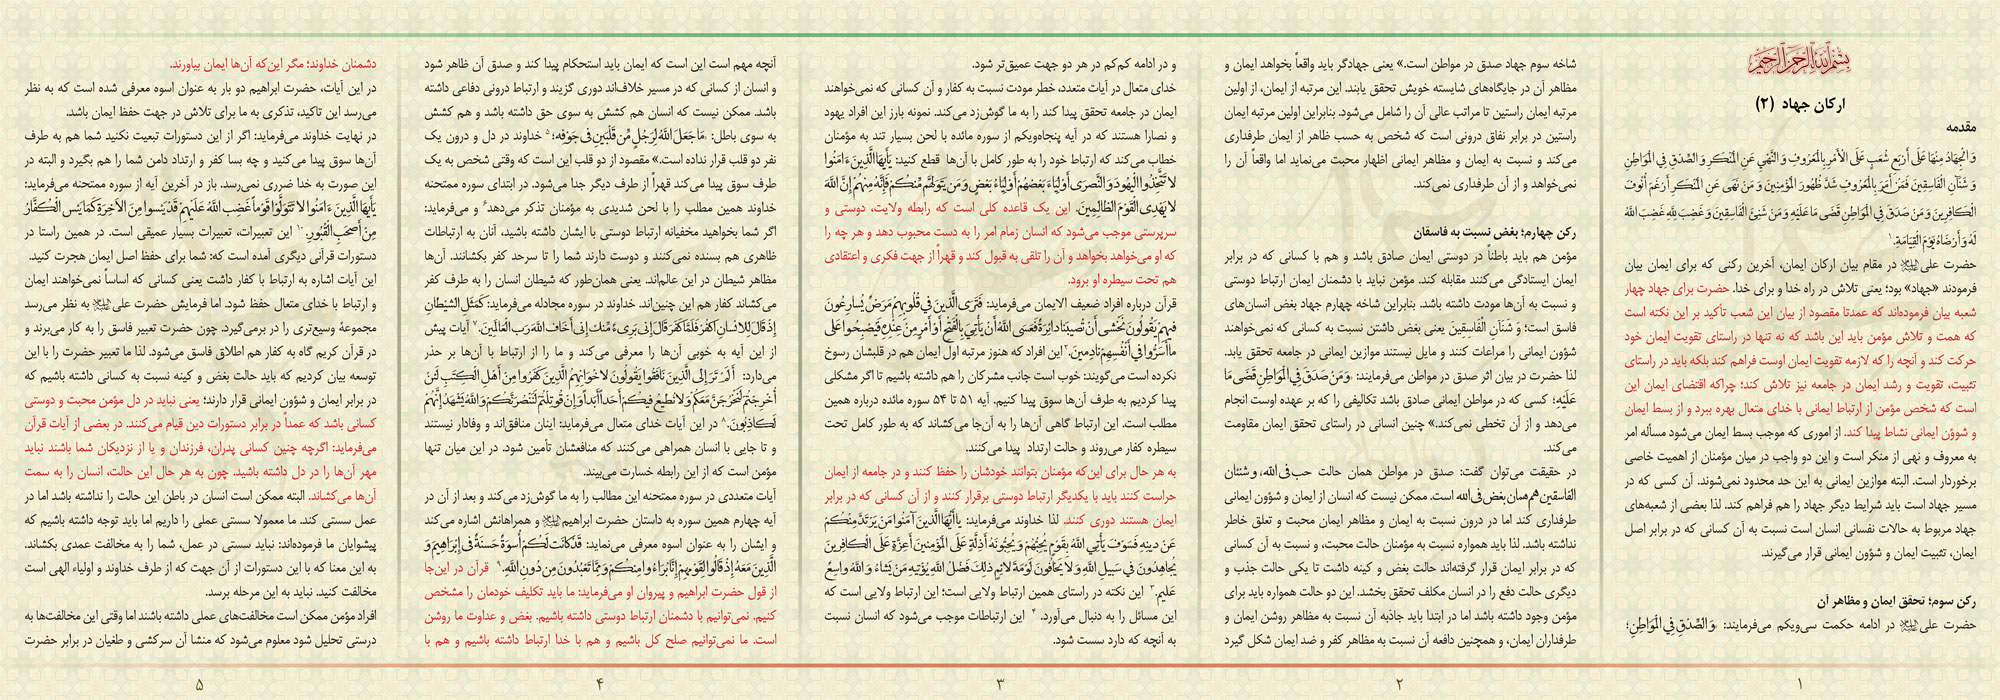 بِسْمِ اللَّهِ الرَّحْمَنِ الرَّحِيمِ
ارکان جهاد (۲)
مقدمه
وَ الْجِهَادُ مِنْهَا عَلَى أَرْبَعِ شُعَبٍ عَلَى الْأَمْرِ بِالْمَعْرُوفِ وَ النَّهْيِ عَنِ الْمُنْكَرِ وَ الصِّدْقِ فِي الْمَوَاطِنِ
وَ شَنَآنِ الْفَاسِقِينَ فَمَنْ أَمَرَ بِالْمَعْرُوفِ شَدَّ ظُهُورَ الْمُؤْمِنِينَ وَ مَنْ نَهَى عَنِ الْمُنْكَرِ أَرْغَمَ أُنُوفَ
الْكَافِرِينَ وَ مَنْ صَدَقَ فِي الْمَوَاطِنِ قَضَى مَا عَلَيْهِ وَ مَنْ شَنِئَ الْفَاسِقِينَ وَ غَضِبَ لِلَّهِ غَضِبَ اللَّهُ
لَهُ وَ أَرْضَاهُ يَوْمَ الْقِيَامَةِ.۱
حضرت علی در مقام بیان ارکان ایمان، آخرین رکنی که برای ایمان بیان
فرمودند «جهاد» بود؛ یعنی تلاش در راه خدا و برای خدا. حضرت برای جهاد چهار
شعبه بیان فرموده‌اند که عمدتا مقصود از بیان این شعب تأکید بر این نکته است
که همت و تلاش مؤمن باید این باشد که نه تنها در راستای تقویت ایمان خود
حرکت کند و آنچه را که لازمه تقویت ایمان اوست فراهم کند بلکه باید در راستای
تثبیت، تقویت و رشد ایمان در جامعه نیز تلاش کند؛ چراکه اقتضای ایمان این
است که شخص مؤمن از ارتباط ایمانی با خدای متعال بهره ببرد و از بسط ایمان
و شوؤن ایمانی نشاط پیدا کند. از اموری که موجب بسط ایمان می‌شود مسأله امر
به معروف و نهی از منکر است و این دو واجب در میان مؤمنان از اهمیت خاصی
برخوردار است. البته موازین ایمانی به این حد محدود نمی‌شوند. آن کسی که در
مسیر جهاد است باید شرایط دیگر جهاد را هم فراهم کند. لذا بعضی از شعبه‌های
جهاد مربوط به حالات نفسانی انسان است نسبت به آن کسانی که در برابر اصل
ایمان، تثبیت ایمان و شوؤن ایمانی قرار می‌گیرند.
رکن سوم؛ تحقق ایمان و مظاهر آن
حضرت علی در ادامه حکمت سی‌ویکم می‌فرمایند: «وَ الصِّدْقِ فِي الْمَوَاطِنِ؛
۱
شاخه سوم جهاد صدق در مواطن است.» یعنی جهادگر باید واقعاً بخواهد ایمان و
مظاهر آن در جایگاه‌های شایسته خویش تحقق یابند. این مرتبه از ایمان، از اولین
مرتبه ایمان راستین تا مراتب عالی آن را شامل می‌شود. بنابراین اولین مرتبه ایمان
راستین در برابر نفاق درونی است که شخص به حسب ظاهر از ایمان طرفداری
می‌کند و نسبت به ایمان و مظاهر ایمانی اظهار محبت می‌نماید اما واقعاً آن را
نمی‌خواهد و از آن طرفداری نمی‌کند.
رکن چهارم؛ بغض نسبت به فاسقان
مؤمن هم باید باطناً در دوستی ایمان صادق باشد و هم با کسانی که در برابر
ایمان ایستادگی می‌کنند مقابله کند. مؤمن نباید با دشمنان ایمان ارتباط دوستی
و نسبت به آن‌ها مودت داشته باشد. بنابراین شاخه چهارم جهاد بغض انسان‌های
فاسق است؛ وَ شَنَآنِ الْفَاسِقِينَ یعنی بغض داشتن نسبت به کسانی که نمی‌خواهند
شؤون ایمانی را مراعات کنند و مایل نیستند موازین ایمانی در جامعه تحقق یابد.
لذا حضرت در بیان اثر صدق در مواطن می‌فرمایند: «وَ مَنْ صَدَقَ فِي الْمَوَاطِنِ قَضَى مَا
عَلَيْهِ؛ کسی که در مواطن ایمانی صادق باشد تکالیفی را که بر عهده اوست انجام
می‌دهد و از آن تخطی نمی‌کند.» چنین انسانی در راستای تحقق ایمان مقاومت
می‌کند.
در حقیقت می‌توان گفت: صدق در مواطن همان حالت حب فی الله، و شنئان
الفاسقین هم همان بغض فی الله است. ممکن نیست که انسان از ایمان و شوؤن ایمانی
طرفداری کند اما در درون نسبت به ایمان و مظاهر ایمان محبت و تعلق خاطر
نداشته باشد. لذا باید همواره نسبت به مؤمنان حالت محبت، و نسبت به آن کسانی
که در برابر ایمان قرار گرفته‌اند حالت بغض و کینه داشت تا یکی حالت جذب و
دیگری حالت دفع را در انسان مکلف تحقق بخشد. این دو حالت همواره باید برای
مؤمن وجود داشته باشد اما در ابتدا باید جاذبه آن نسبت به مظاهر روشن ایمان و
طرفداران ایمان، و همچنین دافعه آن نسبت به مظاهر کفر و ضد ایمان شکل گیرد
۲
و در ادامه کم‌کم در هر دو جهت عمیق‌تر شود.
خدای متعال در آیات متعدد، خطر مودت نسبت به کفار و آن کسانی که نمی‌خواهند
ایمان در جامعه تحقق پیدا کند را به ما گوش‌زد می‌کند. نمونه بارز این افراد یهود
و نصارا هستند که در آیه پنجاه‌ویکم از سوره مائده با لحن بسیار تند به مؤمنان
خطاب می‌کند که ارتباط خود را به طور کامل با آن‌ها قطع کنید: يَأَيُّهَا الَّذِينَ ءَامَنُوا
لَا تَتَّخِذُوا الْيَهُودَ وَ النَّصَرَى أَوْلِيَاءَ بَعْضُهُمْ أَوْلِيَاءُ بَعْضٍ وَ مَن يَتَوَلَّهُم مِّنكُمْ فَإِنَّهُ مِنْهُمْ إِنَّ اللَّهَ
لَا يَهْدِى الْقَوْمَ الظَّالِمِينَ. این یک قاعده کلی است که رابطه ولایت، دوستی و
سرپرستی موجب می‌شود که انسان زمام امر را به دست محبوب دهد و هر چه را
که او می‌خواهد بخواهد و آن را تلقی به قبول کند و قهراً از جهت فکری و اعتقادی
هم تحت سیطره او برود.
قرآن درباره افراد ضعیف الایمان می‌فرماید: فَتَرَى الَّذِينَ فِي قُلُوبِهِم مَّرَضٌ يُسَارِعُونَ
فِيهِمْ يَقُولُونَ نَخْشَى أَنْ تُصِيبَنَا دَائِرَةٌ فَعَسَى اللَّهُ أَنْ يَأْتِيَ بِالْفَتْحِ أَوْ أَمْرٍ مِنْ عِنْدِهِ فَيُصْبِحُوا عَلَى
مَا أَسَرُّوا فِي أَنْفُسِهِمْ نَادِمِينَ.۲ این افراد که هنوز مرتبه اول ایمان هم در قلبشان رسوخ
نکرده است می‌گویند: خوب است جانب مشرکان را هم داشته باشیم تا اگر مشکلی
پیدا کردیم به طرف آن‌ها سوق پیدا کنیم. آیه ۵۱ تا ۵۴ سوره مائده درباره همین
مطلب است. این ارتباط گاهی آن‌ها را به آن‌جا می‌کشاند که به طور کامل تحت
سیطره کفار می‌روند و حالت ارتداد پیدا می‌کنند.
به هر حال برای این‌که مؤمنان بتوانند خودشان را حفظ کنند و در جامعه از ایمان
حراست کنند باید با یکدیگر ارتباط دوستی برقرار کنند و از آن کسانی که در برابر
ایمان هستند دوری کنند. لذا خداوند می‌فرماید: يا أَيُّهَا الَّذينَ آمَنُوا مَنْ يَرْتَدَّ مِنْكُمْ
عَنْ دينِهِ فَسَوْفَ يَأْتِي اللَّهُ بِقَوْمٍ يُحِبُّهُمْ وَ يُحِبُّونَهُ أَذِلَّةٍ عَلَى الْمُؤْمِنينَ أَعِزَّةٍ عَلَى الْكافِرينَ
يُجاهِدُونَ في سَبيلِ اللَّهِ وَ لا يَخافُونَ لَوْمَةَ لائِمٍ ذلِكَ فَضْلُ اللَّهِ يُؤْتيهِ مَنْ يَشاءُ وَ اللَّهُ واسِعٌ
عَليمٌ.۳ این نکته در راستای همین ارتباط ولایی است؛ این ارتباط ولایی است که
این مسائل را به دنبال می‌آورد. ۴ این ارتباطات موجب می‌شود که انسان نسبت
به آنچه که دارد سست شود.
۳
آنچه مهم است این است که ایمان باید استحکام پیدا کند و صدق آن ظاهر شود
و انسان از کسانی که در مسیر خلاف‌اند دوری گزیند و ارتباط درونی دفاعی داشته
باشد. ممکن نیست که انسان هم کشش به سوی حق داشته باشد و هم کشش
به سوی باطل: مَا جَعَلَ اللَّهُ لِرَجُلٍ مِّن قَلْبَيْنِ فِى جَوْفِهِ؛۵ خداوند در دل و درون یک
نفر دو قلب قرار نداده است.» مقصود از دو قلب این است که وقتی شخص به یک
طرف سوق پیدا می‌کند قهراً از طرف دیگر جدا می‌شود. در ابتدای سوره ممتحنه
خداوند همین مطلب را با لحن شدیدی به مؤمنان تذکر می‌دهد۶ و می‌فرماید:
اگر شما بخواهید مخفیانه ارتباط دوستی با ایشان داشته باشید، آنان به ارتباطات
ظاهری هم بسنده نمی‌کنند و دوست دارند شما را تا سرحد کفر بکشانند. آن‌ها
مظاهر شیطان در این عالم‌اند. یعنی همان‌طور که شیطان انسان را به طرف کفر
می‌کشاند کفار هم این چنین‌اند. خداوند در سوره مجادله می‌فرماید: كَمَثَلِ الشَّيْطَانِ
إِذْ قَالَ لِلْإِنسَانِ اكْفُرْ فَلَمَّا كَفَرَ قَالَ إِنِّى بَرِىءٌ مِّنكَ إِنِّى أَخَافُ اللَّهَ رَبَّ الْعَالَمِينَ.۷ آیات پیش
از این آیه به خوبی آن‌ها را معرفی می‌کند و ما را از ارتباط با آن‌ها بر حذر
می‌دارد: أَلَمْ تَرَ إِلَى الَّذِينَ نَافَقُوا يَقُولُونَ لِإِخْوَانِهِمُ الَّذِينَ كَفَرُوا مِنْ أَهْلِ الْكِتَبِ لَئنْ
أُخْرِجْتُمْ لَنَخْرُجَنَّ مَعَكُمْ وَ لَا نُطِيعُ فِيكُمْ أَحَداً أَبَداً وَ إِن قُوتِلْتُمْ لَنَنصُرَنَّكُمْ وَ اللَّهُ يَشْهَدُ إِنَّهُمْ
لَكَاذِبُونَ.۸ در این آیات خدای متعال می‌فرماید: اینان منافق‌اند و وفادار نیستند
و تا جایی با انسان همراهی می‌کنند که منافعشان تأمین شود. در این میان تنها
مؤمن است که از این رابطه خسارت می‌بیند.
آیات متعددی در سوره ممتحنه این مطالب را به ما گوش‌زد می‌کند و بعد از آن در
آیه چهارم همین سوره به داستان حضرت ابراهیم و همراهانش اشاره می‌کند
و ایشان را به عنوان اسوه معرفی می‌نماید: قَدْ كَانَتْ لَكُمْ أُسْوَةٌ حَسَنَةٌ فِى إِبْرَاهِيمَ وَ
الَّذِينَ مَعَهُ إِذْ قَالُوا لِقَوْمِهِمْ إِنَّا بُرَءَاؤُا مِنكُمْ وَ مِمَّا تَعْبُدُونَ مِن دُونِ اللَّهِ.۹ قرآن در این‌جا
از قول حضرت ابراهیم و پیروان او می‌فرماید: ما باید تکلیف خودمان را مشخص
کنیم. نمی‌توانیم با دشمنان ارتباط دوستی داشته باشیم. بغض و عداوت ما روشن
است. ما نمی‌توانیم صلح کل باشیم و هم با خدا ارتباط داشته باشیم و هم با
۴
دشمنان خداوند؛ مگر این‌که آن‌ها ایمان بیاورند.
در این آیات، حضرت ابراهیم دو بار به عنوان اسوه معرفی شده است که به نظر
می‌رسد این تاکید، تذکری به ما برای تلاش در جهت حفظ ایمان باشد.
در نهایت خداوند می‌فرماید: اگر از این دستورات تبعیت نکنید شما هم به طرف
آن‌ها سوق پیدا می‌کنید و چه بسا کفر و ارتداد دامن شما را هم بگیرد و البته در
این صورت به خدا ضرری نمی‌رسد. باز در آخرین آیه از سوره ممتحنه می‌فرماید:
يَأَيُّهَا الَّذِينَ ءَامَنُوا لَا تَتَوَلَّوْا قَوْماً غَضِبَ اللَّهُ عَلَيْهِمْ قَدْ يَئِسُوا مِنَ الآخِرَةِ كَمَا يَئِسَ الْكُفَّارُ
مِنْ أَصْحَابِ الْقُبُورِ.۱۰ این تعبیرات، تعبیرات بسیار عمیقی است. در همین راستا در
دستورات قرآنی دیگری آمده است که: شما برای حفظ اصل ایمان هجرت کنید.
این آیات اشاره به ارتباط با کفار داشت یعنی کسانی که اساساً نمی‌خواهند ایمان
و ارتباط با خدای متعال حفظ شود. اما فرمایش حضرت علی به نظر می‌رسد
مجموعهٔ وسیع‌تری را در برمی‌گیرد. چون حضرت تعبیر فاسق را به کار می‌برند و
در قرآن کریم گاه به کفار هم اطلاق فاسق می‌شود. لذا ما تعبیر حضرت را با این
توسعه بیان کردیم که باید حالت بغض و کینه نسبت به کسانی داشته باشیم که
در برابر ایمان و شوؤن ایمانی قرار دارند؛ یعنی نباید در دل مؤمن محبت و دوستی
کسانی باشد که عمداً در برابر دستورات دین قیام می‌کنند. در بعضی از آیات قرآن
می‌فرماید: اگرچه چنین کسانی پدران، فرزندان و یا از نزدیکان شما باشند نباید
مهر آن‌ها را در دل داشته باشید. چون به هر حال این حالت، انسان را به سمت
آن‌ها می‌کشاند. البته ممکن است انسان در باطن این حالت را نداشته باشد اما در
عمل سستی کند. ما معمولا سستی عملی را داریم اما باید توجه داشته باشیم که
پیشوایان ما فرموده‌اند: نباید سستی در عمل، شما را به مخالفت عمدی بکشاند.
به این معنا که با این دستورات از آن جهت که از طرف خداوند و اولیاء الهی است
مخالفت کنید. نباید به این مرحله برسد.
افراد مؤمن ممکن است مخالفت‌های عملی داشته باشند اما وقتی این مخالفت‌ها به
درستی تحلیل شود معلوم می‌شود که منشا آن سرکشی و طغیان در برابر حضرت
۵